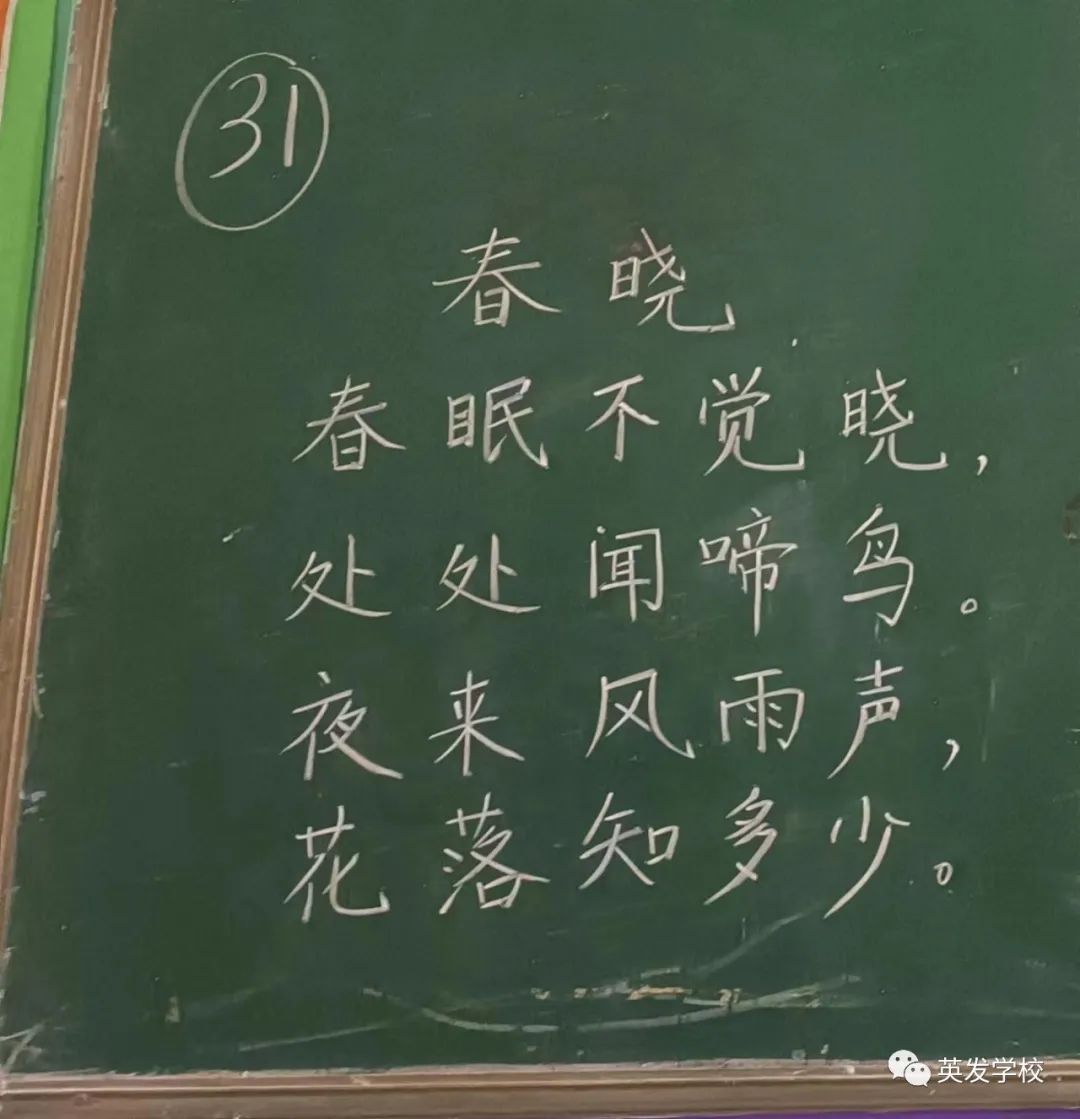 31
春晓
春眠不觉晓，
处处闻啼鸟。
夜来风雨声，
花落知多少。
英发学校